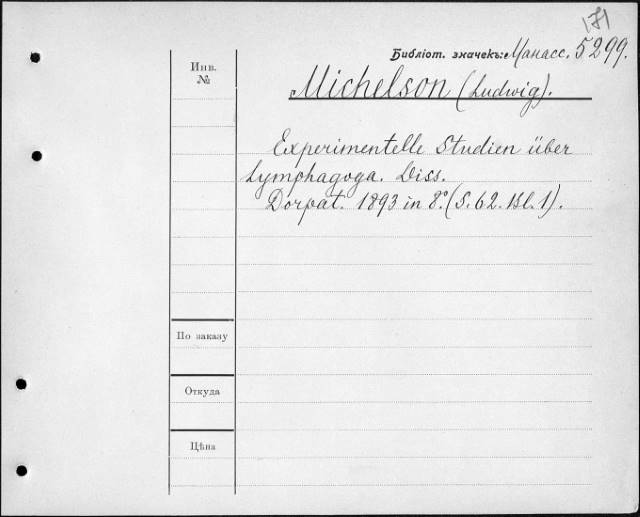 171
Библіот. значекъ: Манасс. 5299.
Инв.
№
Michelson (Ludwig).
Experimentelle Studien über
Lymphagoga. Diss.
Dorpat. 1893 in 8º. (S. 62. Bl. 1).
По заказу
Откуда
Цѣна